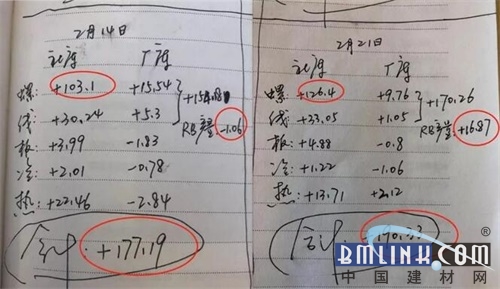 2月14日
社库 厂库
螺: +103.1 +15.54
线: +30.24 +5.3 +154.18
RB产量 -1.06
板: +3.99 -1.83
冷: +2.01 -0.78
热: +22.46 -2.84
合计: +177.19
2月21日
社库 厂库
螺: +126.4 +9.76
线: +23.05 +1.05 +170.26
RB产量 +16.87
板: +4.88 -0.8
冷: +1.22 -1.06
热: +13.71 +2.12
合计
BMLINK.COM®
中国建材网